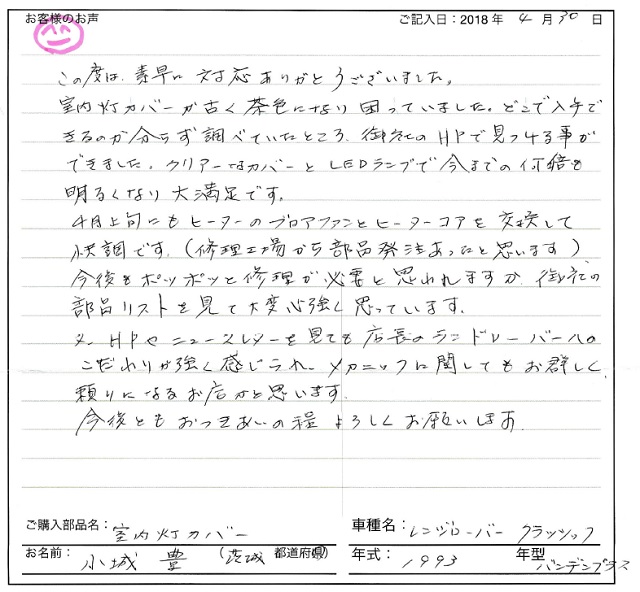 お客様のお声 ご記入日：2018年 4月30日
この度は、素早い対応ありがとうございました。
室内灯カバーが古く茶色になり困っていました。どこで入手で
きるのか分らず調べていたところ、御社のHPで見つける事が
できました。クリアーなカバーとLEDランプで今までの何倍も
明るくなり大満足です。
4月上旬にもヒーターのブロアファンとヒーターコアを交換して
快調です。（修理工場から部品発注あったと思います）
今後もポツポツと修理が必要と思われますが、御社の
部品リストを見て大変心強く思っています。
又、HPやニュースレターを見ても店長のランドローバーへの
こだわりが強く感じられ、メカニックに関してもお詳しく、
頼りになるお店かと思います。
今後ともおつきあいの程よろしくお願いします
ご購入部品名：室内灯カバー 車種名：レンジローバー クラシック
お名前：小城 豊 （茨城 都道府県） 年式：1993 年型 バンデンプラス